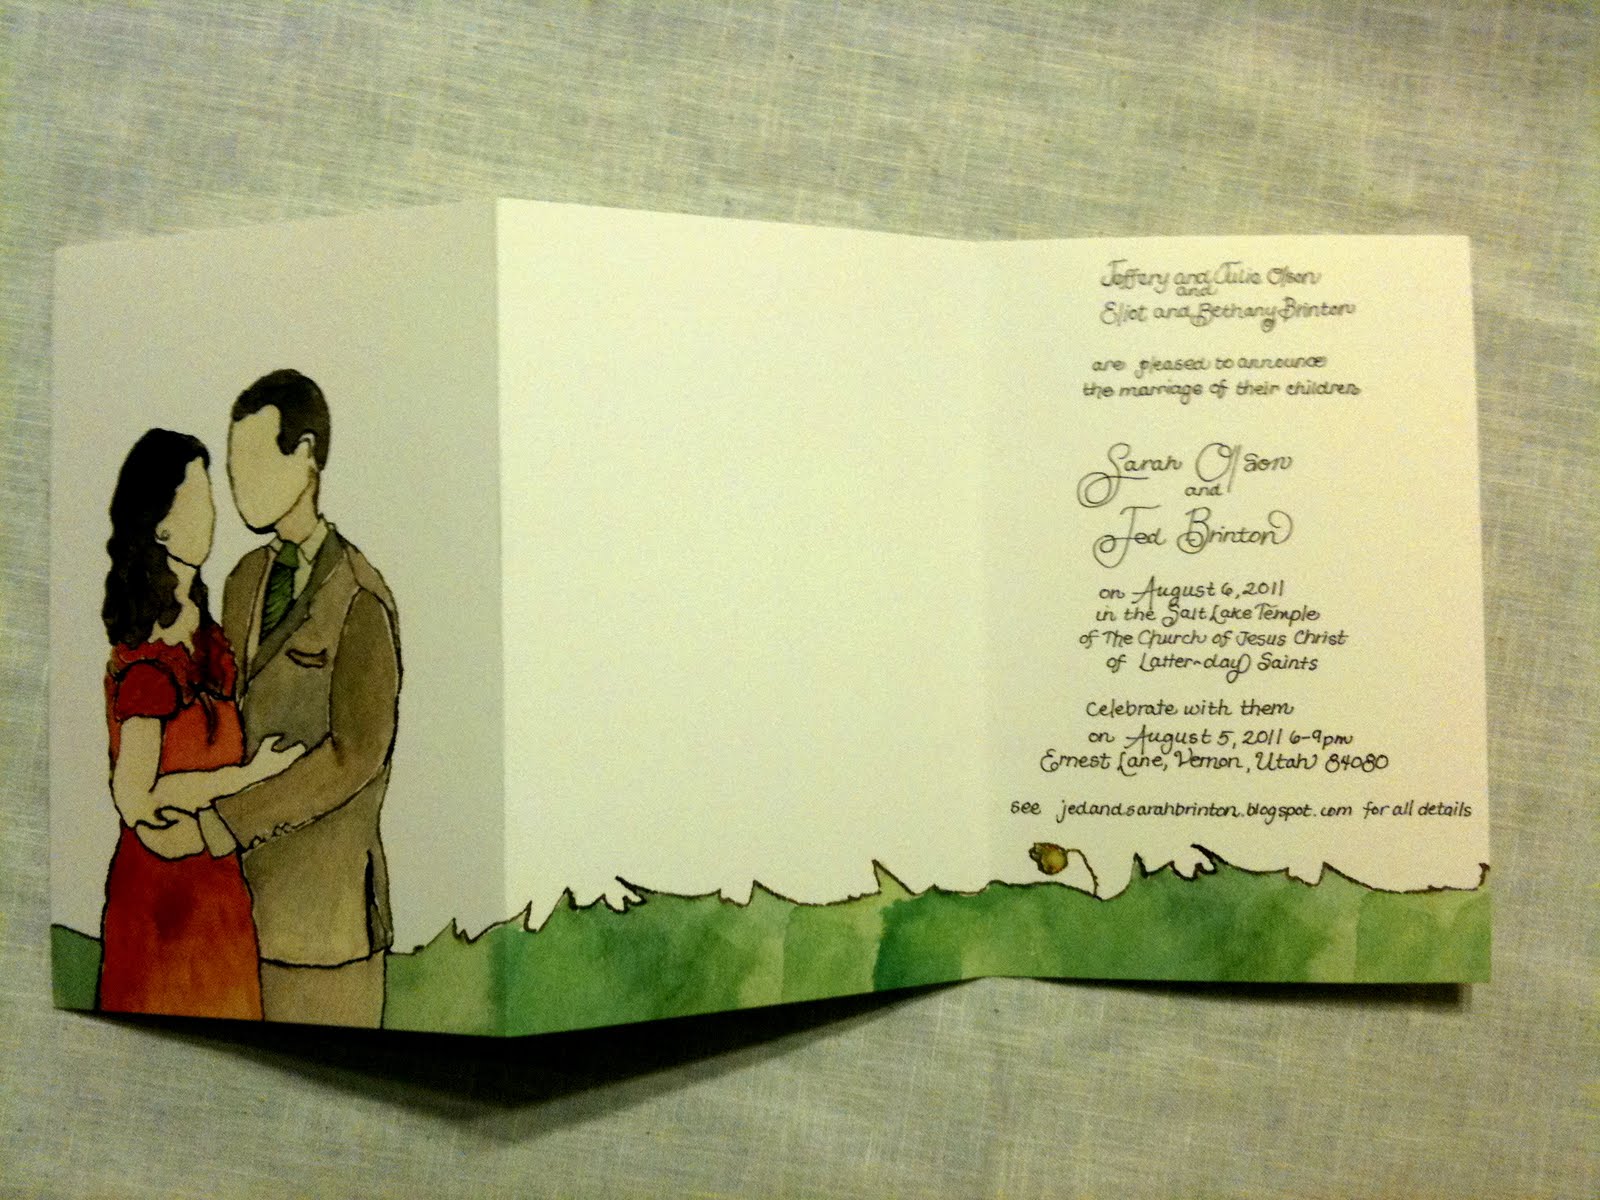 Jeffery and Julie Olson
and
Eliot and Bethany Brinton
are pleased to announce
the marriage of their children
Sarah Olson
and
Jed Brinton
on August 6, 2011
in the Salt Lake Temple
of The Church of Jesus Christ
of Latter-day Saints
Celebrate with them
on August 5, 2011 6-9pm
Ernest Lane, Vernon, Utah 84080
see jedandsarahbrinton.blogspot.com for all details